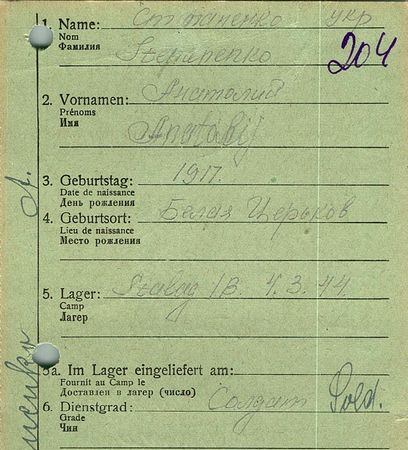 1. Name: Степаненко укр
Nom
Фамилия
204
2. Vornamen: Анатолий
Prénoms
Имя
Anatolij
3. Geburtstag: 1917.
Date de naissance
День рождения
4. Geburtsort: Белая Церьков
Lieu de naissance
Место рождения
5. Lager: Stalag IB 4.3.44.
Camp
Лагерь
5a. Im Lager eingeliefert am:
Fournit au Camp le
Доставлен в лагерь (число)
6. Dienstgrad: Солдат Sold.
Grade
Чин